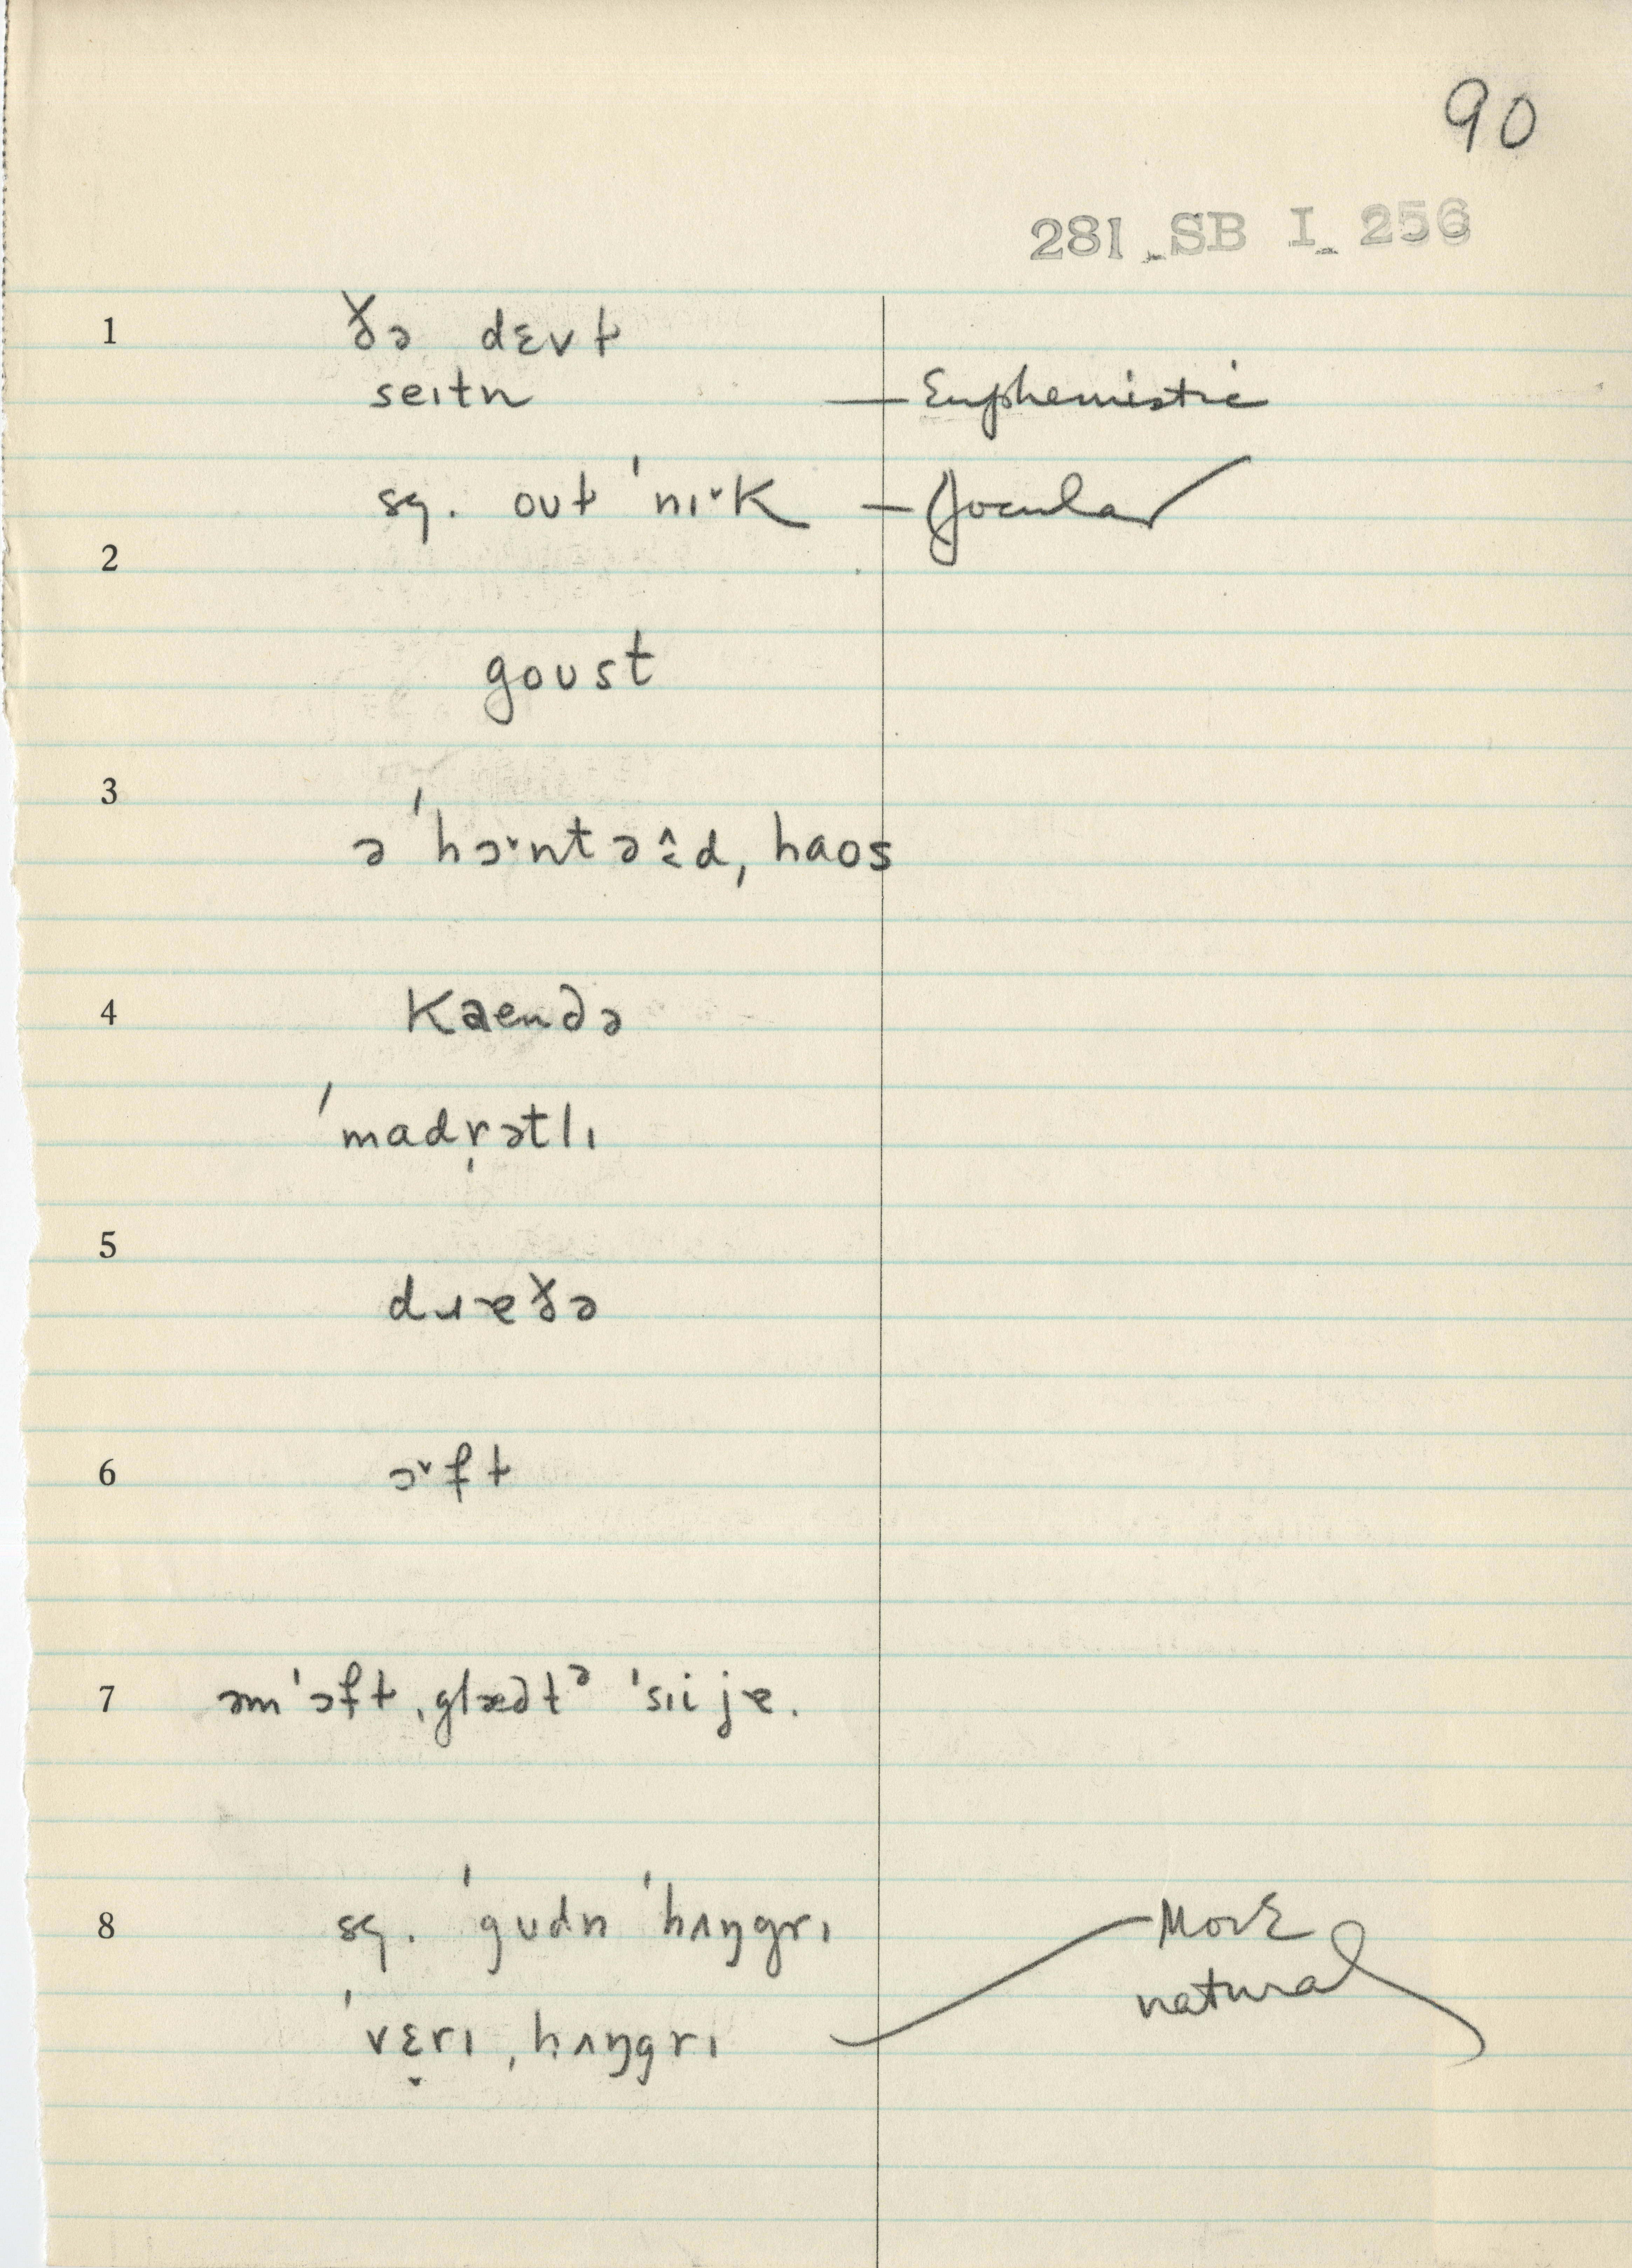 90
281 SB I 256
1 ðə dɛvɫ
seɪtn — Euphemistic
sg. oʊɫ ˈnɪ˅k — Jocular
2
goʊst
3
ə ˈhɔ˅ntəɛ̂d, haos
4 Kaenðə
ˈmadr̩ətlɪ
5
dɹɐðə
6 ɔ˅fɫ
7 əm ˈɔfɫ ˌglæðtᵊ ˈsɪi jɐ.
8 sg. ˈgʊdn ˈhʌŋgrɪ More
natural
ˈvɛ̣rɪ ˌhʌŋgrɪ